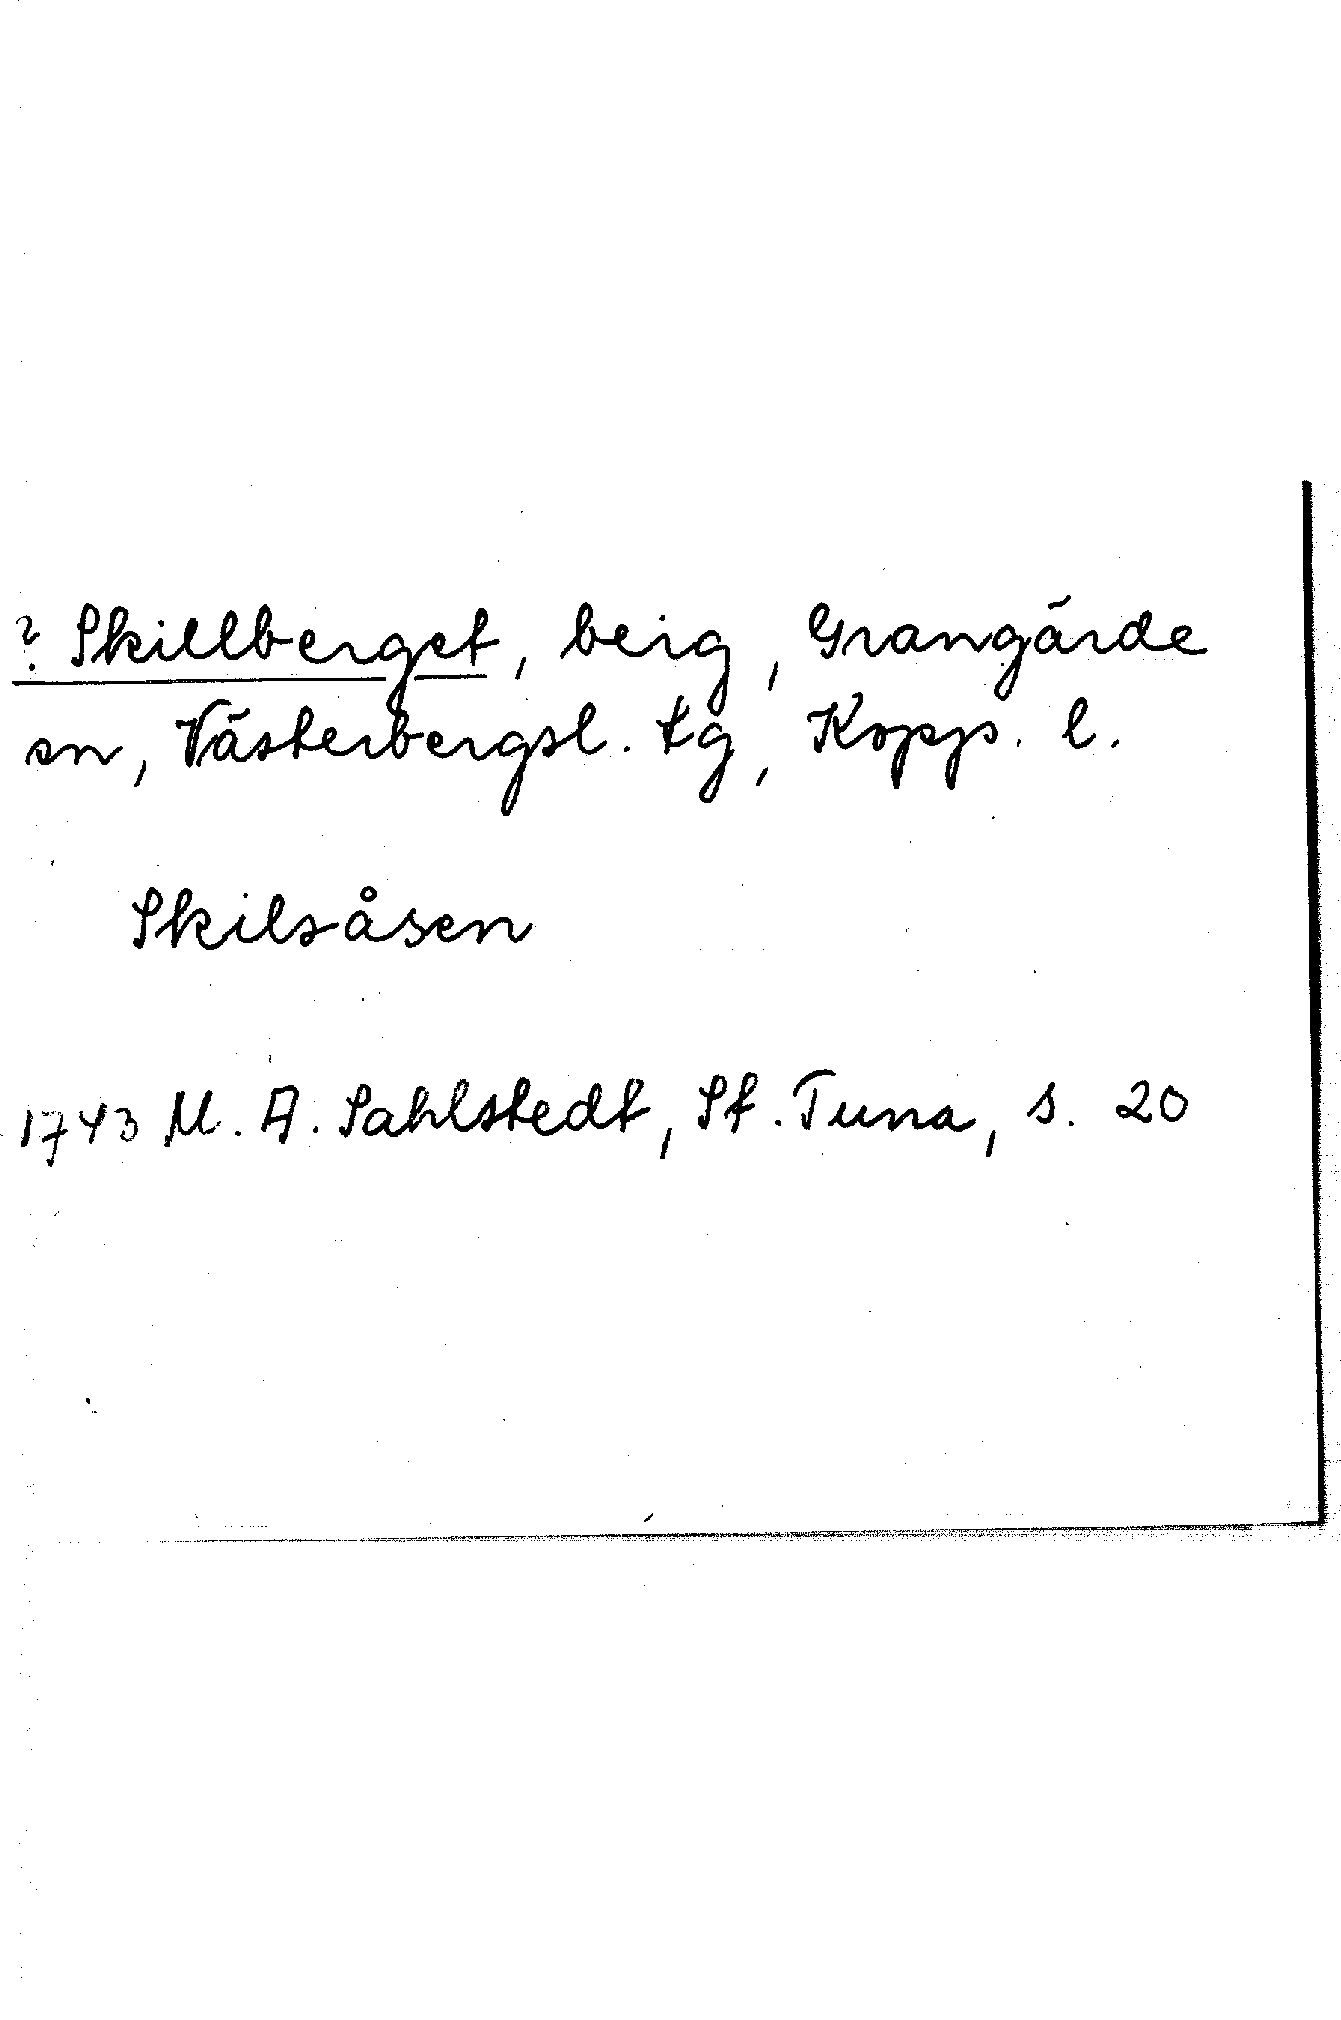 ? Skillberget, berg, Grangärde
sn, Västerbergsl. tg, Kopp. l.
Skilsåsen
1743 M. A. Sahlstedt, St. Tuna, s. 20